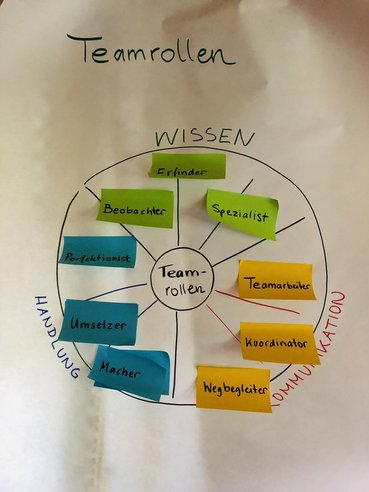 Teamrollen
WISSEN
Erfinder
Beobachter
Spezialist
Perfektionist
Team-
rollen
Teamarbeiter
HANDLUNG
Umsetzer
Koordinator
Macher
Wegbegleiter
OMMUNIKATION